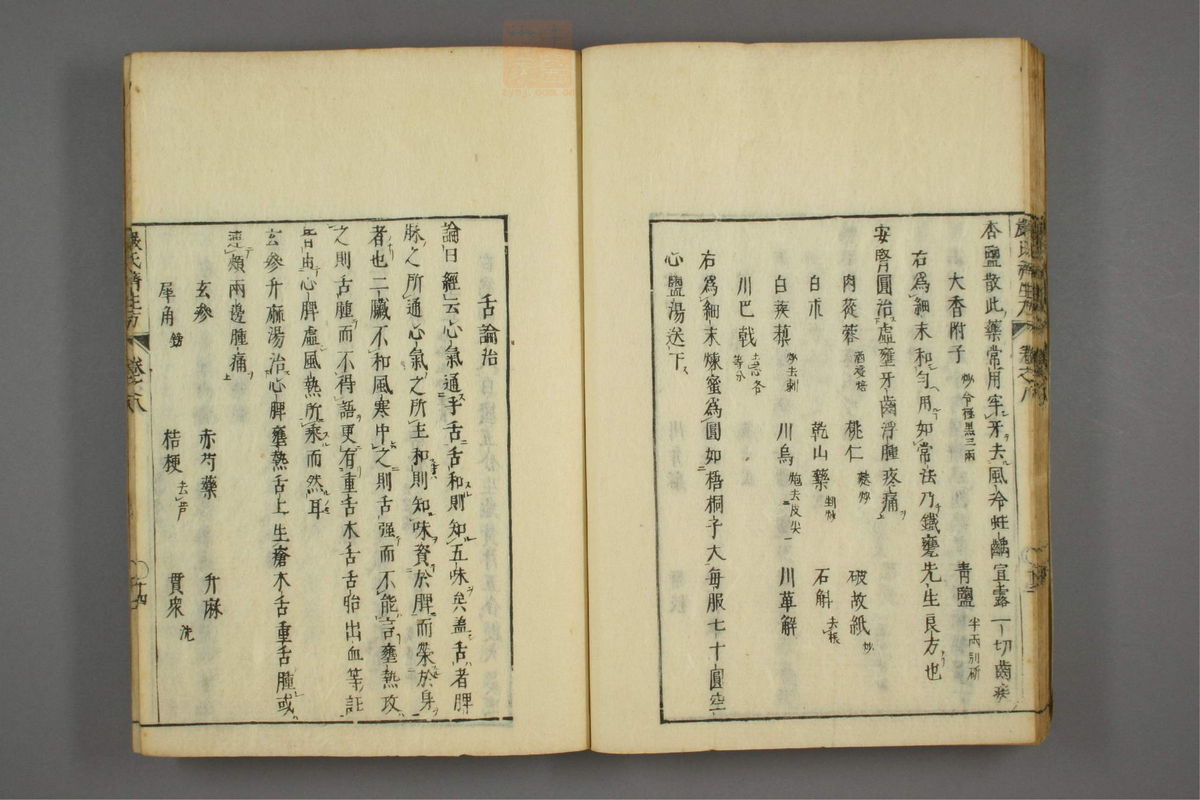 杏鹽散此藥常用牢牙去風冷蛀齲宣露一切齒疾
大香附子炒令極黑三兩 青鹽半兩別研
右爲細末和勻用如常法乃鐵甕先生良方也
安腎圓治虛壅牙齒浮腫疼痛
肉蓯蓉酒浸焙 桃仁麩炒 破故紙炒
白朮 乾山藥剉炒 石斛去根
白蒺藜炒去刺 川烏炮去皮尖 川萆解
川巴戟去心各等分
右爲細末煉蜜爲圓如梧桐子大每服七十圓空
心鹽湯送下
嚴氏濟生方 卷之八
舌論治
論曰經云心氣通乎舌舌和則知五味矣盖舌者脾
脉之所通心氣之所主和則知味資於脾而榮於身
者也二臟不和風寒中之則舌强而不能言壅熱攻
之則舌腫而不得語更有重舌木舌舌胎出血等証
皆由心脾虛風熱所乘而然耳
玄參升麻湯治心脾壅熱舌上生瘡木舌重舌腫或
連頰兩邊腫痛
玄參 赤芍藥 升麻
犀角鎊 桔梗去芦 貫衆洗
嚴氏濟生方 卷之八 十四